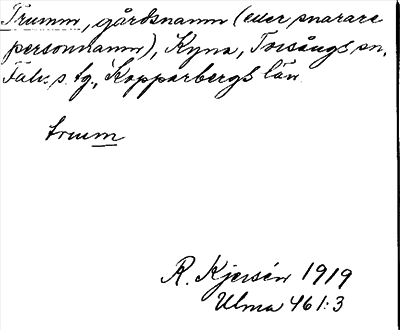 Trumm, gårdsnamn (eller snarare
personnamn), Kyna, Torsångs sn,
Falu s. tg., Kopparbergs län.
trum̲m̲
R. Kjersén 1919
Ulma 461:3